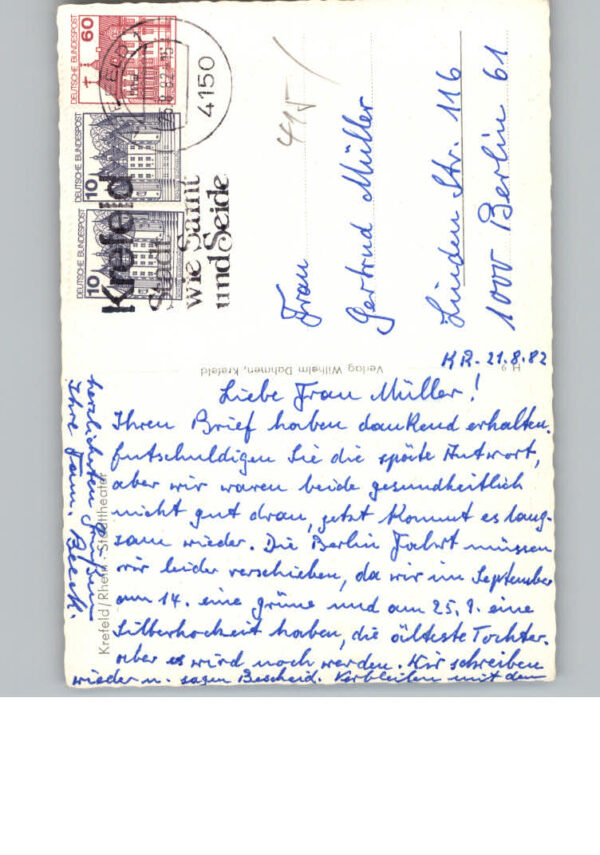 DEUTSCHE BUNDESPOST 60
DEUTSCHE BUNDESPOST 10
DEUTSCHE BUNDESPOST 10
4150
Krefeld
Stadt
wie Samt
und Seide
415
Frau
Gertrud Müller
Linden Str. 116
1000 Berlin 61
H 9
Verlag Wilhelm Dahmen, Krefeld
Krefeld/Rhein - Stadttheater
KR. 21.8.82
Liebe Frau Müller!
Ihren Brief haben dankend erhalten.
Entschuldigen Sie die späte Antwort,
aber wir waren beide gesundheitlich
nicht gut dran, jetzt kommt es lang-
sam wieder. Die Berlin Fahrt müssen
wir leider verschieben, da wir im September
am 14. eine grüne und am 25.9. eine
Silberhochzeit haben, die älteste Tochter.
aber es wird noch werden. Wir schreiben
wieder u. sagen Bescheid. Verbleiben mit den
herzlichsten Grüßen
Ihre Fam. Beeck.